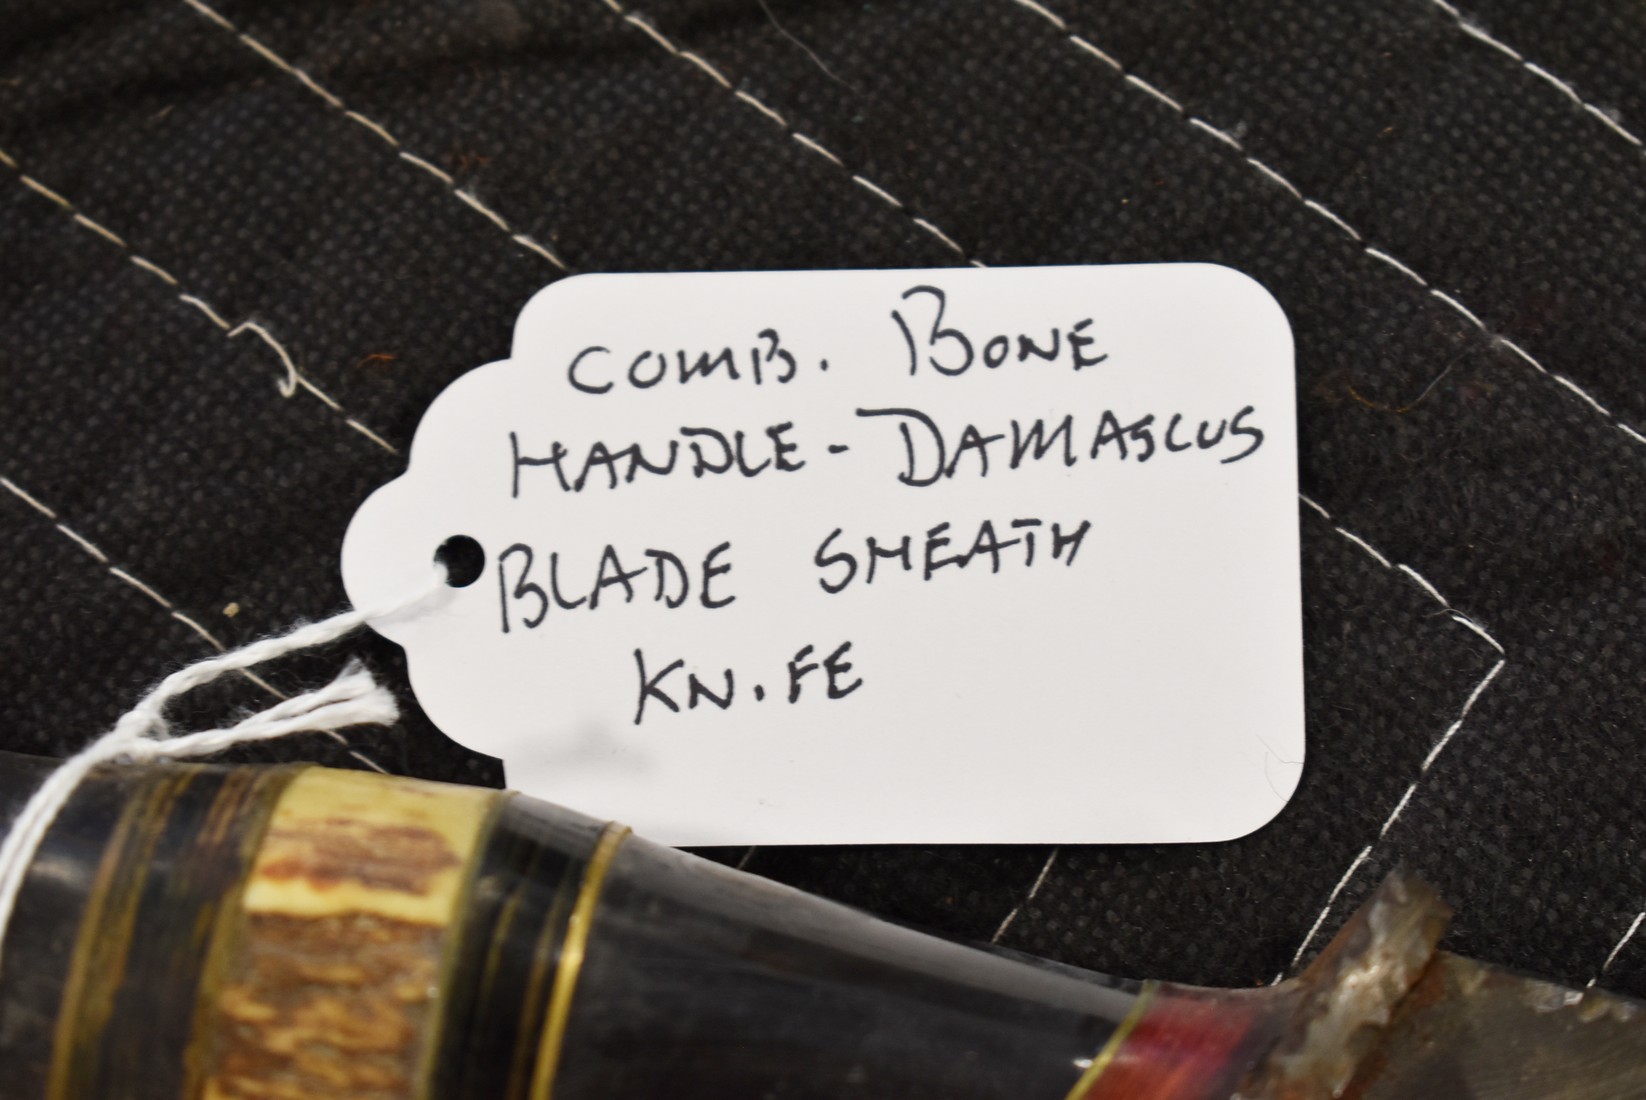 COMB. BONE
HANDLE - DAMASCUS
BLADE SHEATH
KNIFE